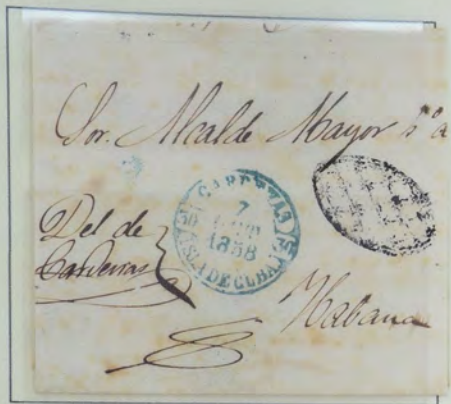 Sor. Alcalde Mayor
CARDENAS
7
1858
ISLA DE CUBA
Del de
Cardenas
Habana